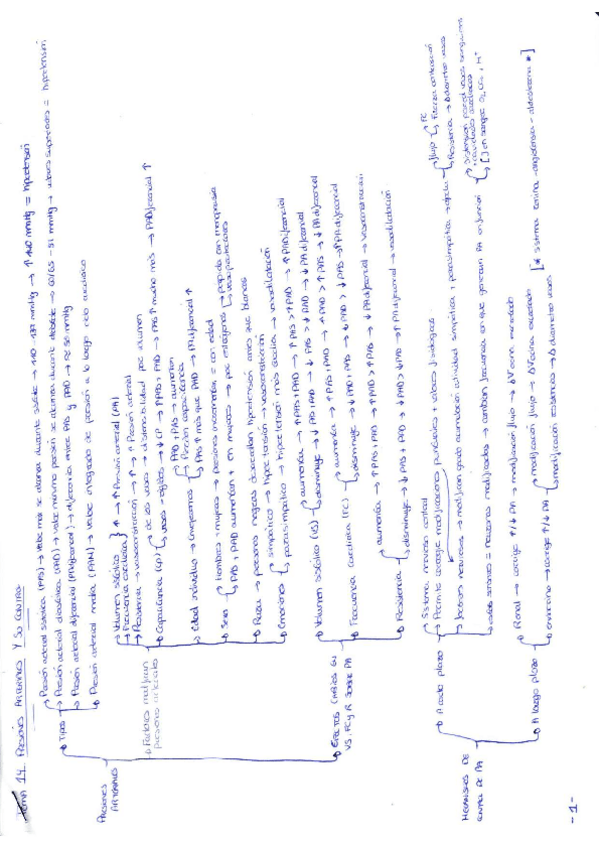 TEMA 14. PRESIONES ARTERIALES Y SU CONTROL
PRESIONES ARTERIALES
Tipos
Presión arterial sistólica (PAS) → valor más se alcanza durante sístole → 110-139 mmHg → ↑ 140 mmHg = hipertensión
Presión arterial diastólica (PAD) → valor mínimo presión se alcanza durante diástole → 60/65 - 89 mmHg → valores superiores = hipertensión
Presión arterial diferencial (PAdiferencial) → diferencia entre PAS y PAD → ≈ 50 mmHg
Presión arterial media (PAM) → valor integrado de presión a lo largo ciclo cardíaco
Factores modifican presiones arteriales
Volumen sistólico
Frecuencia cardíaca } ↑ → ↑ Presión arterial (PA)
Resistencia → vasoconstricción → ↑ → ↑ Presión arterial
Capacitancia (CP)
de los vasos → distensibilidad por volumen
vasos rígidos → ↓ CP → ↑ PAS, PAD → PAS ↑ mucho más → PAdiferencial ↑
Edad individuo → Envejecemos
PAD, PAS → aumentan
Pierden capacitancia
PAS ↑ más que PAD → PAdiferencial ↑
Sexo
Hombres y mujeres → presiones incrementan = con edad
PAS, PAD aumentan + en mujeres → por estrógenos
papel con menopausia
vasoprotectores
Raza → personas negras desarrollan hipertensión antes que blancas
Emociones
simpático → hipertensión → vasoconstricción
parasimpático → hipotensión más acusada → vasodilatación
EFECTOS CAMBIOS EN VS, FC y R SOBRE PA
Volumen sistólico (VS)
aumenta → ↑ PAS, PAD → ↑ PAS > ↑ PAD → ↑ PAdiferencial
disminuye → ↓ PAS, PAD → ↓ PAS > ↓ PAD → ↓ PAdiferencial
Frecuencia cardíaca (FC)
aumenta → ↑ PAS, PAD → ↑ PAD > ↑ PAS → ↓ PAdiferencial
disminuye → ↓ PAS, PAD → ↓ PAD > ↓ PAS → ↑ PAdiferencial
Resistencia
aumenta → ↑ PAS, PAD → ↑ PAD > ↑ PAS → ↓ PAdiferencial → vasoconstricción
disminuye → ↓ PAS, PAD → ↓ PAD > ↓ PAS → ↑ PAdiferencial → vasodilatación
MECANISMOS DE CONTROL DE PA
A corto plazo
Sistema nervioso central
Permite corregir modificaciones puntuales + valores fisiológicos
Centros nerviosos → modifican grado actividad simpática y parasimpática → afecta
flujo
FC
Fuerza contracción
Resistencia → Δ diámetro vasos
→ cambian frecuencia en que generan PA en función
Distensión pared vasos sanguíneos y cavidades cardíacas
[ ] en sangre O₂, CO₂ y H⁺
A largo plazo
Renal → corrige ↑/↓ PA → modificación flujo → ΔVorina
Endocrino → corrige ↑/↓ PA
modificación flujo → ΔVorina excretada
modificación resistencia → Δ diámetro vasos
[* sistema renina - angiotensina - aldosterona *]
-1-